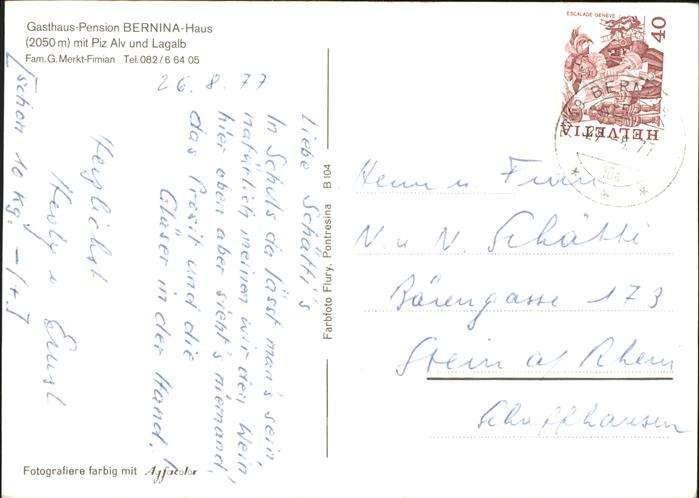 Gasthaus-Pension BERNINA-Haus
(2050 m) mit Piz Alv und Lagalb
Fam. G. Merkt-Fimian Tel. 082/6 64 05
26.8.77
Liebe Schätti's
In Schuls da lässt man's sein,
natürlich meinen wir den Wein,
hier oben aber sieht's niemand,
das Prosit und die
Gläser in der Hand!
Herzlichst
Hedy u Ernst
[schon 10 kg. – 1+]
Farbfoto Flury, Pontresina B 104
ESCALADE GENÈVE
40
HELVETIA
Herrn u Frau
N. u N. Schätti
Bärengasse 173
Stein a/ Rhein
Schaffhausen
Fotografiere farbig mit Agfacolor